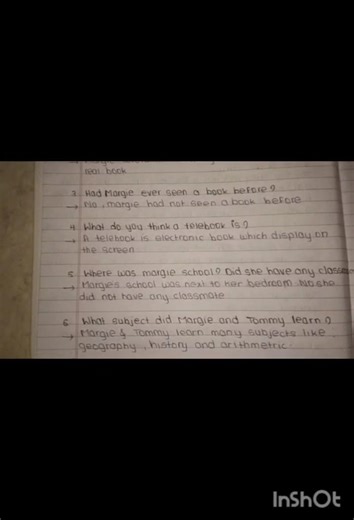 real book
3. Had Margie ever seen a book before?
→ No, margie had not seen a book before
4. What do you think a telebook is?
→ A telebook is electronic book which display on
the screen
5. Where was margie school? Did she have any classmate
→ Margie's school was next to her bedroom No she
did not have any classmate
6. What subject did Margie and Tommy learn?
→ Margie & Tommy learn many subjects like
geography, history and arithmetric.
InShOt